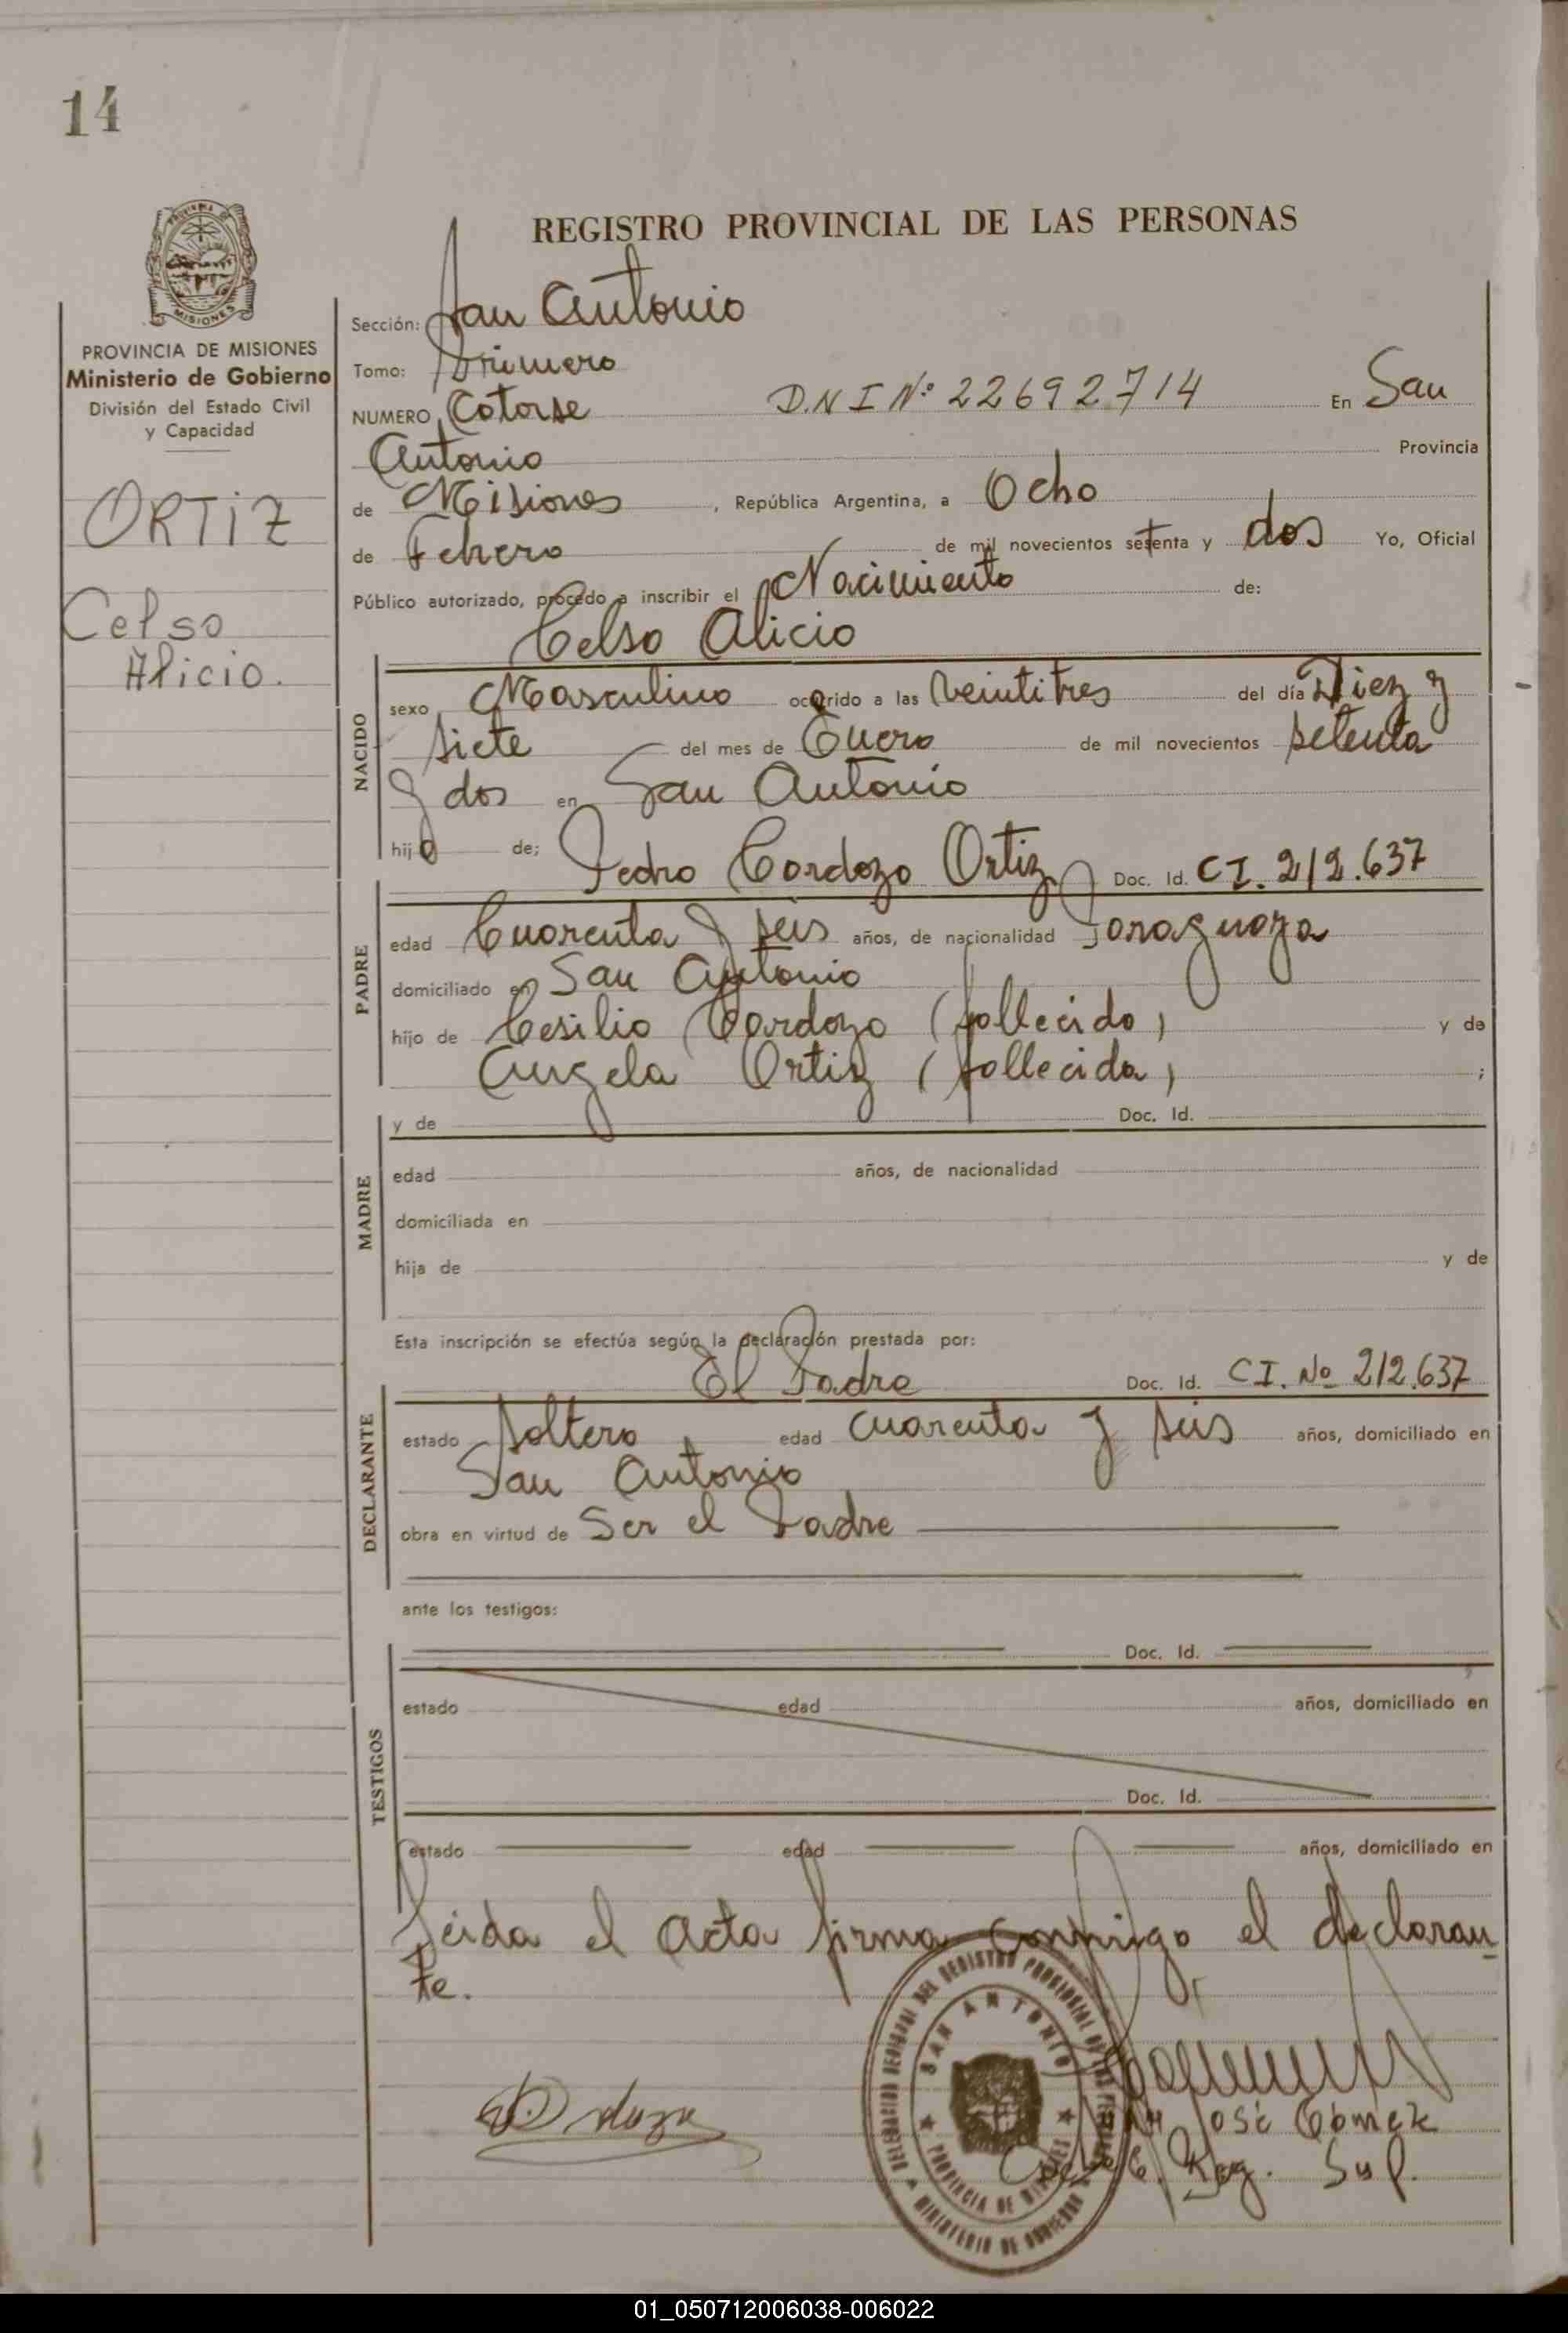 14
REGISTRO PROVINCIAL DE LAS PERSONAS
PROVINCIA DE MISIONES
Ministerio de Gobierno
División del Estado Civil
y Capacidad
ORTIZ
Celso
Alicio.
Sección: San Antonio
Tomo: Primero
NUMERO Catorse D.N I Nº 22692714 En San
Antonio Provincia
de Misiones, República Argentina, a Ocho
de Febrero de mil novecientos setenta y dos Yo, Oficial
Público autorizado, procedo a inscribir el Nacimiento de:
Celso Alicio
NACIDO
sexo Masculino ocurrido a las veintitres del día Diez y
siete del mes de Enero de mil novecientos setenta
y dos en San Antonio
hijo de; Pedro Cardozo Ortiz Doc. Id. CI. 212.637
PADRE
edad Cuarenta y seis años, de nacionalidad Paraguaya
domiciliado en San Antonio
hijo de Cesilio Cardozo (fallecido) y de
Angela Ortiz (fallecida) ;
MADRE
y de Doc. Id.
edad años, de nacionalidad
domiciliada en
hija de y de
Esta inscripción se efectúa según la declaración prestada por:
El Padre Doc. Id. CI. Nº 212.637
DECLARANTE
estado soltero edad cuarenta y seis años, domiciliado en
San Antonio
obra en virtud de Ser el Padre
ante los testigos:
Doc. Id.
TESTIGOS
estado edad años, domiciliado en
Doc. Id.
estado edad años, domiciliado en
Leida el acta firma conmigo el declaran
te.
DELEGACION REGIONAL DEL REGISTRO PROVINCIAL DE LAS PERSONAS
SAN ANTONIO
PROVINCIA DE MISIONES
MINISTERIO DE GOBIERNO
José Gómez
Reg. Sup.
01_050712006038-006022